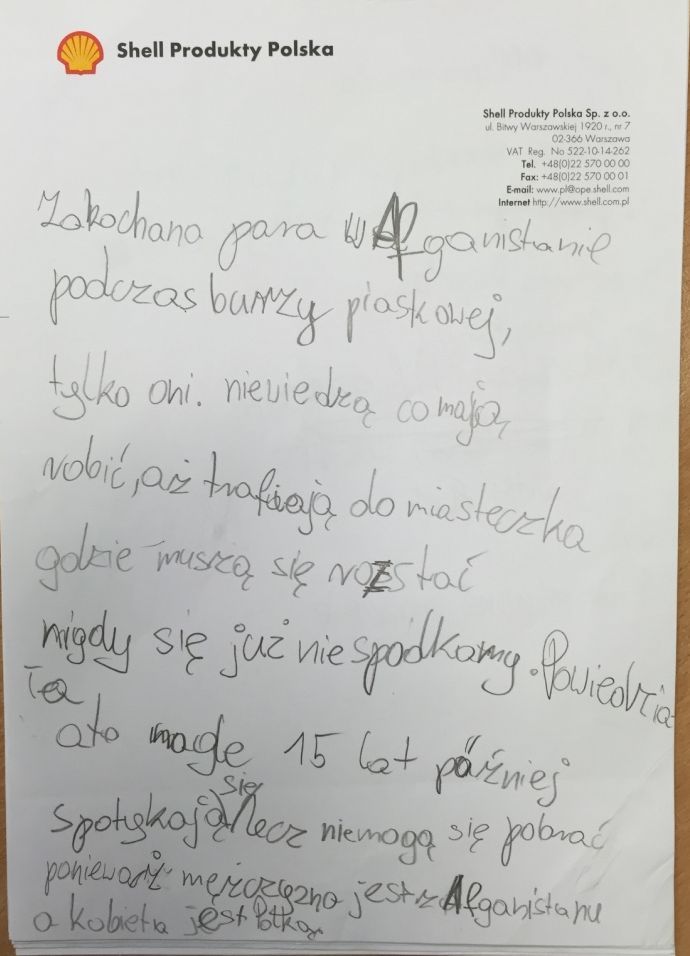 Shell Produkty Polska
Shell Produkty Polska Sp. z o.o.
ul. Bitwy Warszawskiej 1920 r., nr 7
02-366 Warszawa
VAT Reg. No 522-10-14-262
Tel. +48(0)22 570 00 00
Fax: +48(0)22 570 00 01
E-mail: www.pl@ope.shell.com
Internet http://www.shell.com.pl
Zakochana para w Afganistanie
podczas burzy piaskowej,
tylko oni. niewiedzą co mają
robić, aż trafiają do miasteczka
gdzie muszą się rozstać
nigdy się już nie spodkamy. Powiedzia
ła
ato nagle 15 lat później
spotykają się lecz niemogą się pobrać
poniewarz mężczyzna jest z Afganistanu
a kobieta jest Polką.